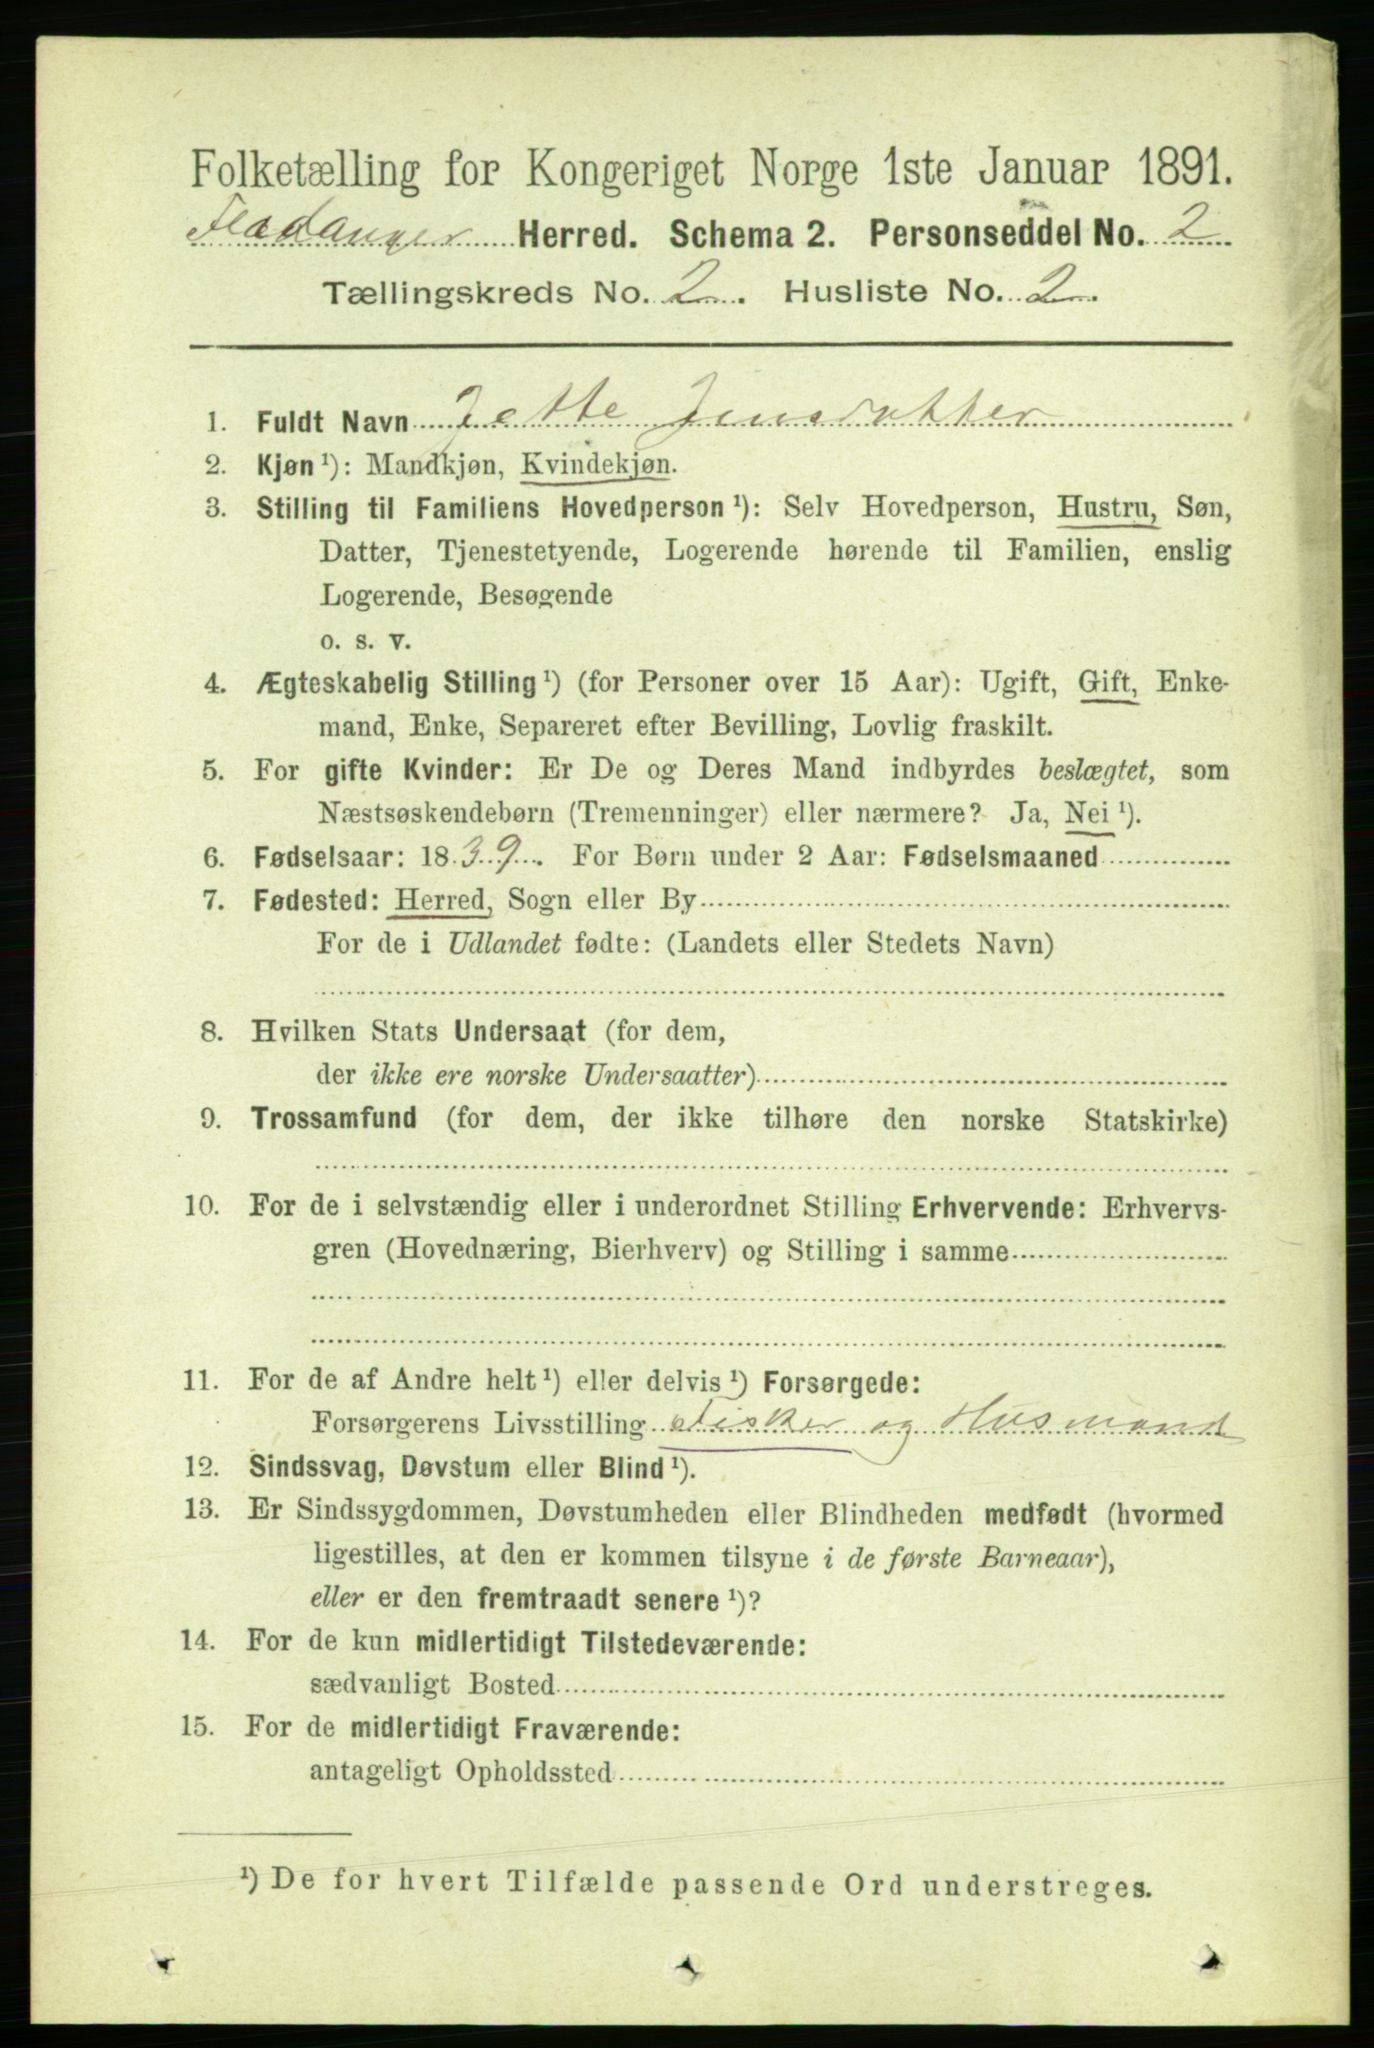 Folketælling for Kongeriget Norge 1ste Januar 1891.
Fladanger Herred. Schema 2. Personseddel No. 2
Tællingskreds No. 2. Husliste No. 2.
1. Fuldt Navn Jette Jensdatter
2. Kjøn ¹): Mandkjøn, Kvindekjøn.
3. Stilling til Familiens Hovedperson ¹): Selv Hovedperson, Hustru, Søn,
Datter, Tjenestetyende, Logerende hørende til Familien, enslig
Logerende, Besøgende
o. s. v.
4. Ægteskabelig Stilling ¹) (for Personer over 15 Aar): Ugift, Gift, Enke-
mand, Enke, Separeret efter Bevilling, Lovlig fraskilt.
5. For gifte Kvinder: Er De og Deres Mand indbyrdes beslægtet, som
Næstsøskendebørn (Tremenninger) eller nærmere? Ja, Nei ¹).
6. Fødselsaar: 1839. For Børn under 2 Aar: Fødselsmaaned
7. Fødested: Herred, Sogn eller By
For de i Udlandet fødte: (Landets eller Stedets Navn)
8. Hvilken Stats Undersaat (for dem,
der ikke ere norske Undersaatter)
9. Trossamfund (for dem, der ikke tilhøre den norske Statskirke)
10. For de i selvstændig eller i underordnet Stilling Erhvervende: Erhvervs-
gren (Hovednæring, Bierhverv) og Stilling i samme
11. For de af Andre helt ¹) eller delvis ¹) Forsørgede:
Forsørgerens Livsstilling Fisker og Husmand
12. Sindssvag, Døvstum eller Blind ¹).
13. Er Sindssygdommen, Døvstumheden eller Blindheden medfødt (hvormed
ligestilles, at den er kommen tilsyne i de første Barneaar),
eller er den fremtraadt senere ¹)?
14. For de kun midlertidigt Tilstedeværende:
sædvanligt Bosted
15. For de midlertidigt Fraværende:
antageligt Opholdssted
¹) De for hvert Tilfælde passende Ord understreges.